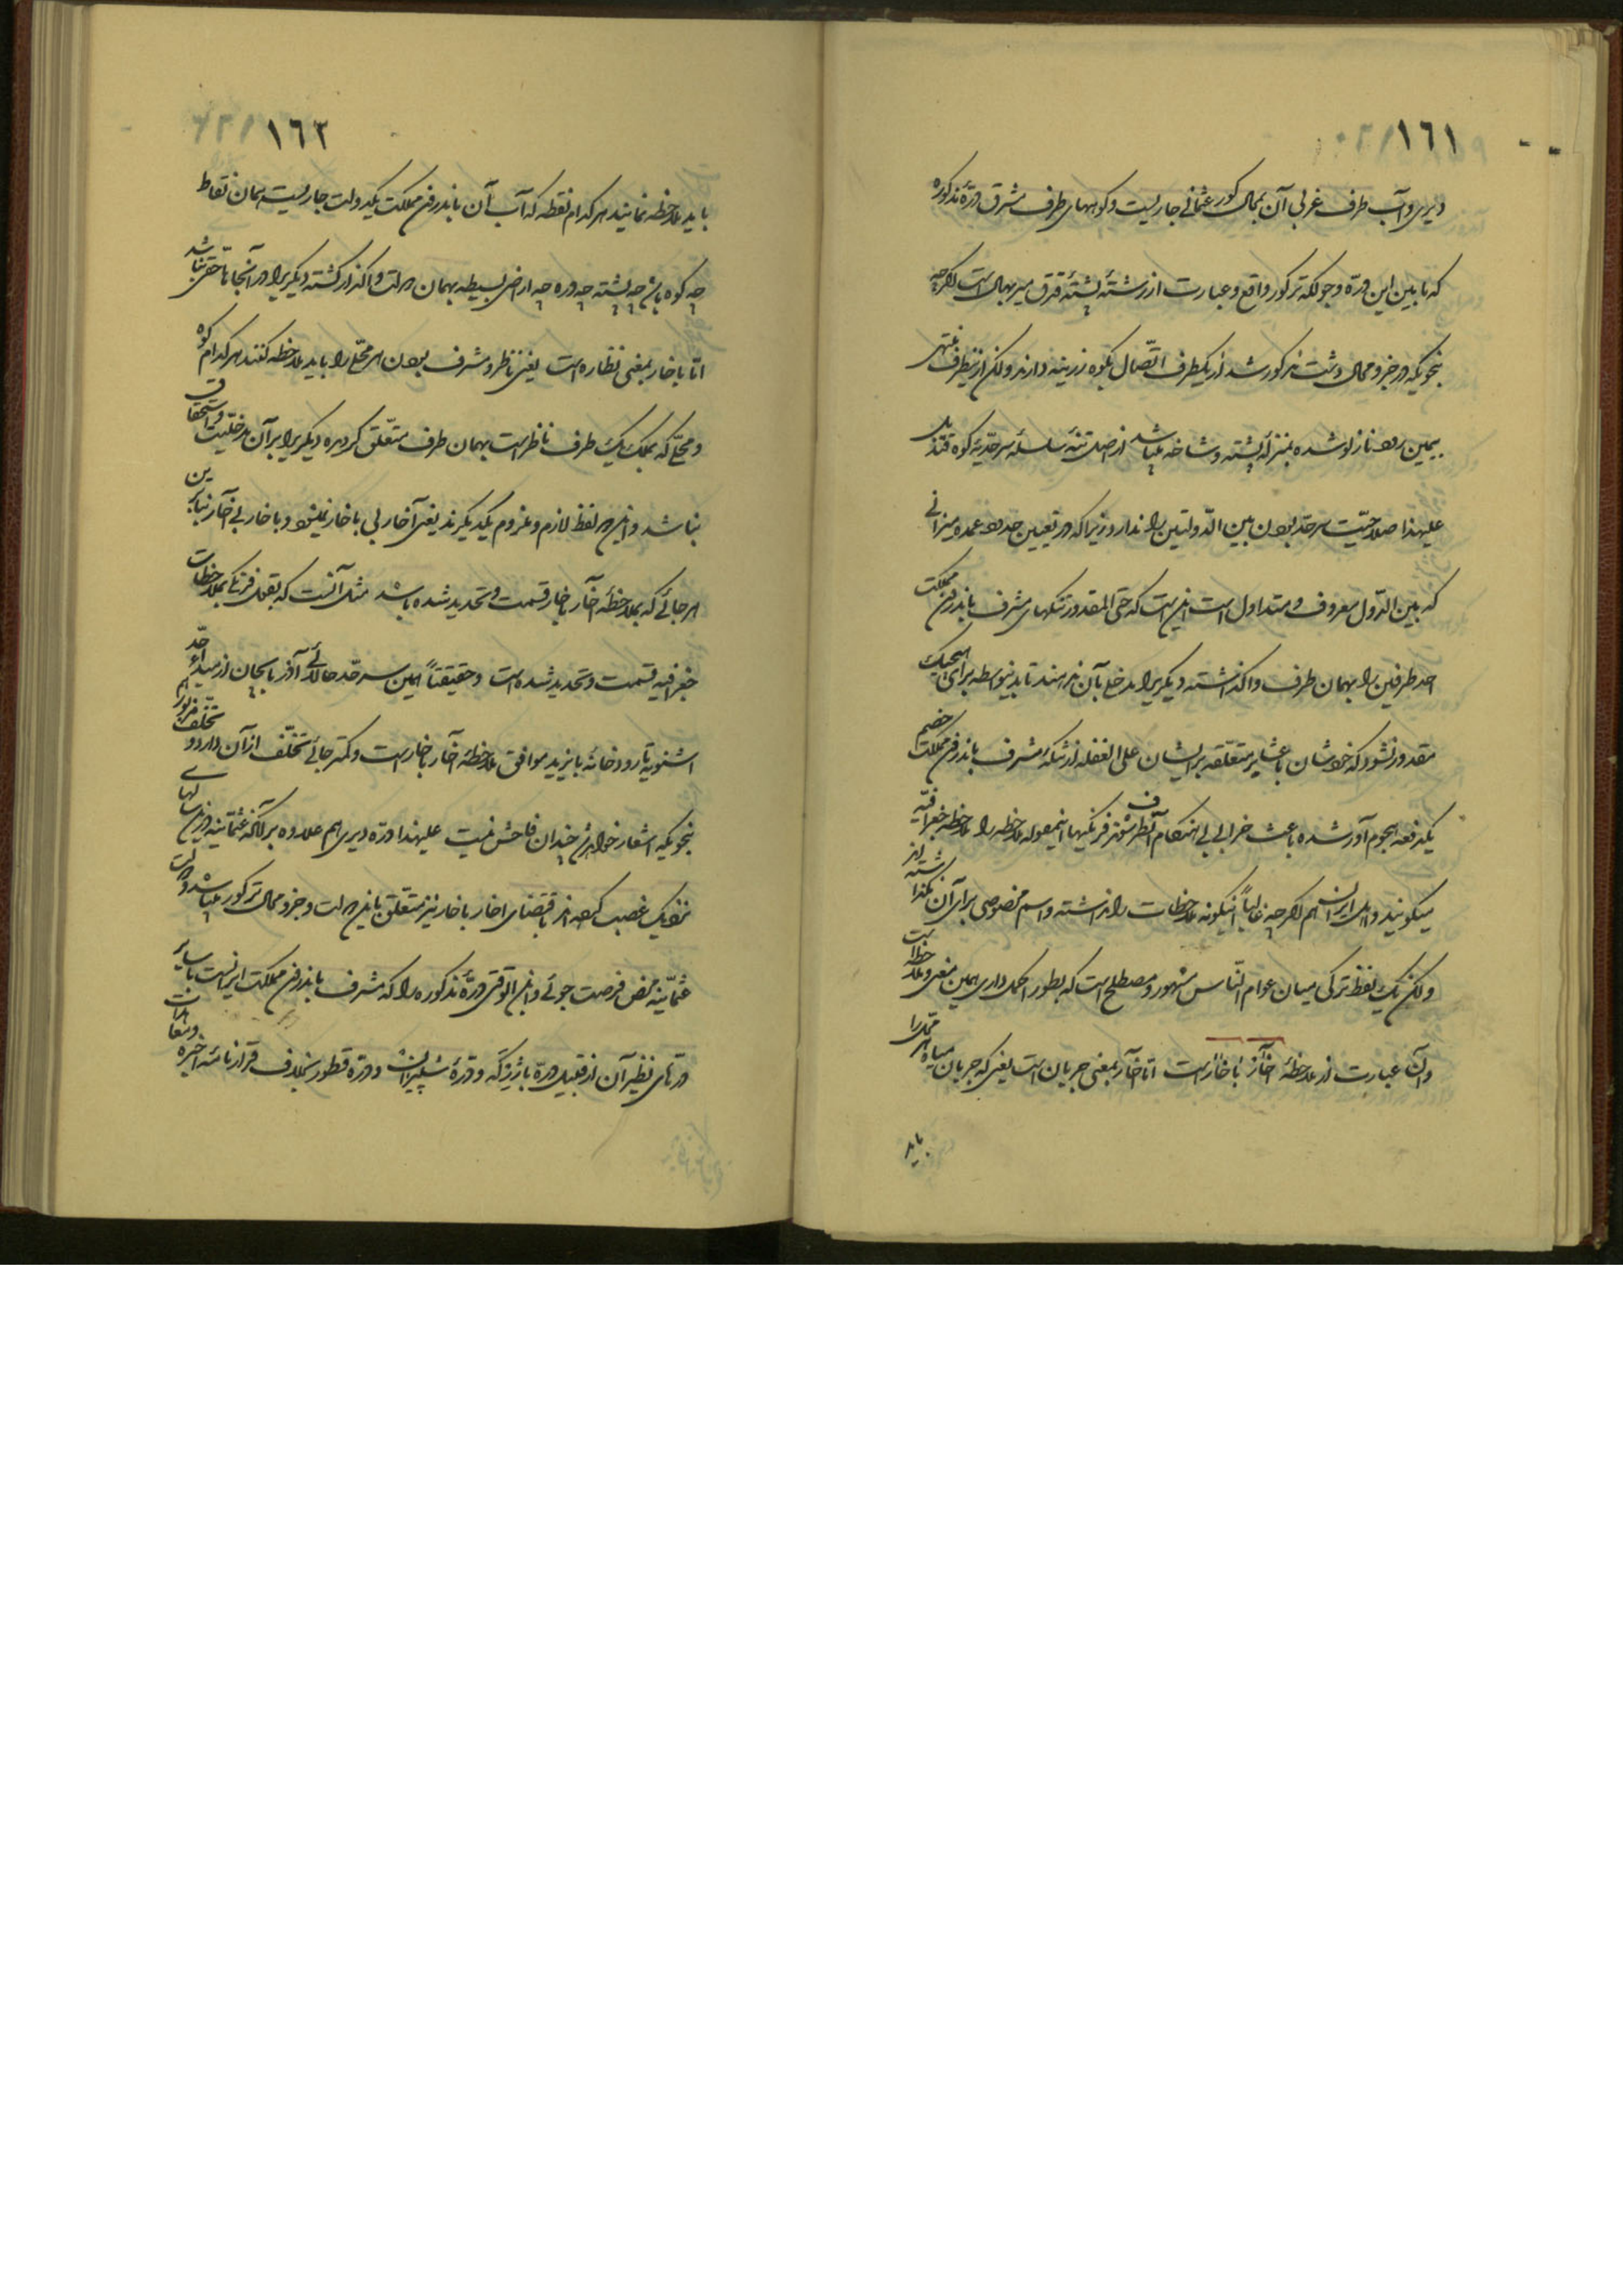 ١٦١
دیری و آب طرف غربی آن بمحال کور عثمانی جاریست و کوههای طرف مشرق درّهٔ مذکوره
که مابین این درّه و جولکه ترکور واقع و عبارت از رشتهٔ پشتهٔ قرق است اگرچه
بنحویکه در جزو محال دشت مذکور شد از یکطرف اتّصال بکوه زرینه دارند ولکن از این طرف منتهی
بزمین نازلو شده بمنزلهٔ پشته و شاخه میباشد از اصل تنهٔ سلسلهٔ سرحدّیهٔ کوه
علیهذا صلاحیّت سرحدّ بودن بین الدّولتین را ندارد زیرا که در تعیین حدود عمده میزانی
که بین الدّول معروف و متداول است این است که حتی المقدور تنکهای مشرف باندرون مملکت
احد طرفین را بهمان طرف واگذاشته دیگریرا مدخل بآن ندهند تا بدینواسطه برای هیچیک
مقدور نشود که خودشان یا عشایر متعلّقه بایشان علی الغفله از تنکهٔ مشرف باندرون مملکت
یکدفعه هجوم آور شده باعث خرابی بی‌هنگام آنطرف شوند فرنکیها اینمعوله ملاحظه را ملاحظهٔ جغرافیّه
میگویند و اهل ایران هم اگرچه غالباً اینگونه ملاحظات را نداشته و اسم مخصوصی برای آن نگذاشته‌اند
ولکن یک لفظ ترکی میان عوام النّاس مشهور و مصطلح است که بطور اکمل دارای همین معنی و ملاحظه است
و آن عبارت از ملاحظهٔ آخار باخار است امّا آخار بمعنی جریان است یعنی که جریان میاه هر محلّ را
باید
١٦٢
باید ملاحظه نمایند هر کدام نقطه که آب آن باندرون مملکت یکدولت جاریست همان نقاط
چه کوه باشد چه پشته چه درّه چه اراضی بسیطه بهمان دولت واگذار گشته دیگریرا در آنجاها حقّی نباشد
امّا باخار بمعنی نظاره است یعنی ناظر و مشرف بودن هر محلّ را باید ملاحظه کنند هر کدام کوه
و محلّی که بملک یک طرف ناظر است بهمان طرف متعلّق کردیده دیگریرا بر آن مدخلیّت و استحقاق
نباشد و این دو لفظ لازم و ملزوم یکدیگرند یعنی آخار بی باخار نمیشود و باخار بی آخار نباید بنابرین
هر جائی که بملاحظهٔ آخار باخار قسمت و تحدید شده باشد مثل آنست که بقول فرنکی بملاحظات
جغرافیه قسمت و تحدید شده است و حقیقتاً همین سرحدّ حالائی آذربایجان از مبدأ حدّ
اشنویه تا رودخانه بایزید موافق ملاحظهٔ آخار باخار است و کمتر جائی تخلّف از آن دارد و تخلّف مزبور هم
بنحویکه اشعار خواهد شد چندان فاحش نیست علیهذا درّه دیری هم علاوه بر آنکه عثمانیه در این سالهای
نزدیک غصب کرده‌اند باقتضای اخار باخار نیز متعلّق باین دولت و جزو محال ترکور میباشد و دولت
عثمانیه محض فرصت جوئی و ابن الوقتی درّهٔ مذکوره را که مشرف باندرون مملکت ایرانست با سایر
درّهای نظیر آن از قبیل درّه بازرگه و درّهٔ شپیران و درّه قطور بخلاف قرارنامهٔ اخیره و معاهدات